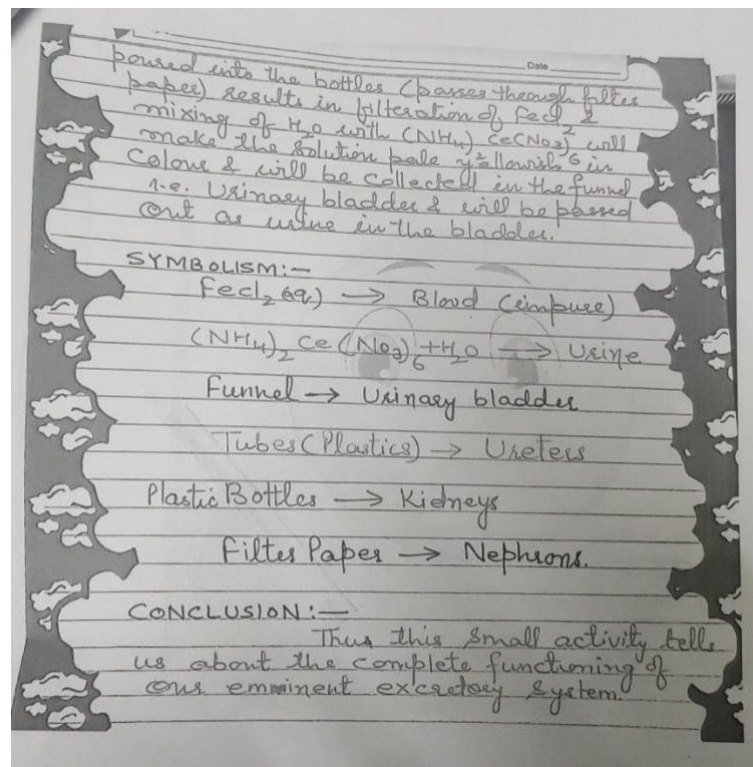 Date
poured into the bottles (passes through filter
paper) results in filteration of FeCl2 &
mixing of H2O with (NH4)2 Ce(NO3)6 will
make the solution pale yellowish in
Colour & will be collected in the funnel
i.e. Urinary bladder & will be passed
out as urine in the bladder.
SYMBOLISM:-
FeCl2 (aq.) → Blood (impure)
(NH4)2 Ce(NO3)6 + H2O → Urine
Funnel → Urinary bladder
Tubes (Plastics) → Ureters
Plastic Bottles → Kidneys
Filter Paper → Nephrons.
CONCLUSION:-
Thus this small activity tells
us about the complete functioning of
our emminent excretory system.